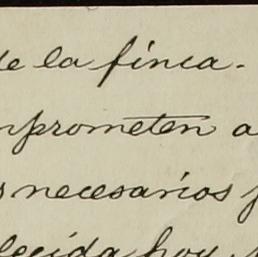 de la finca.
mprometen a
s necesarios p
lecida hoy